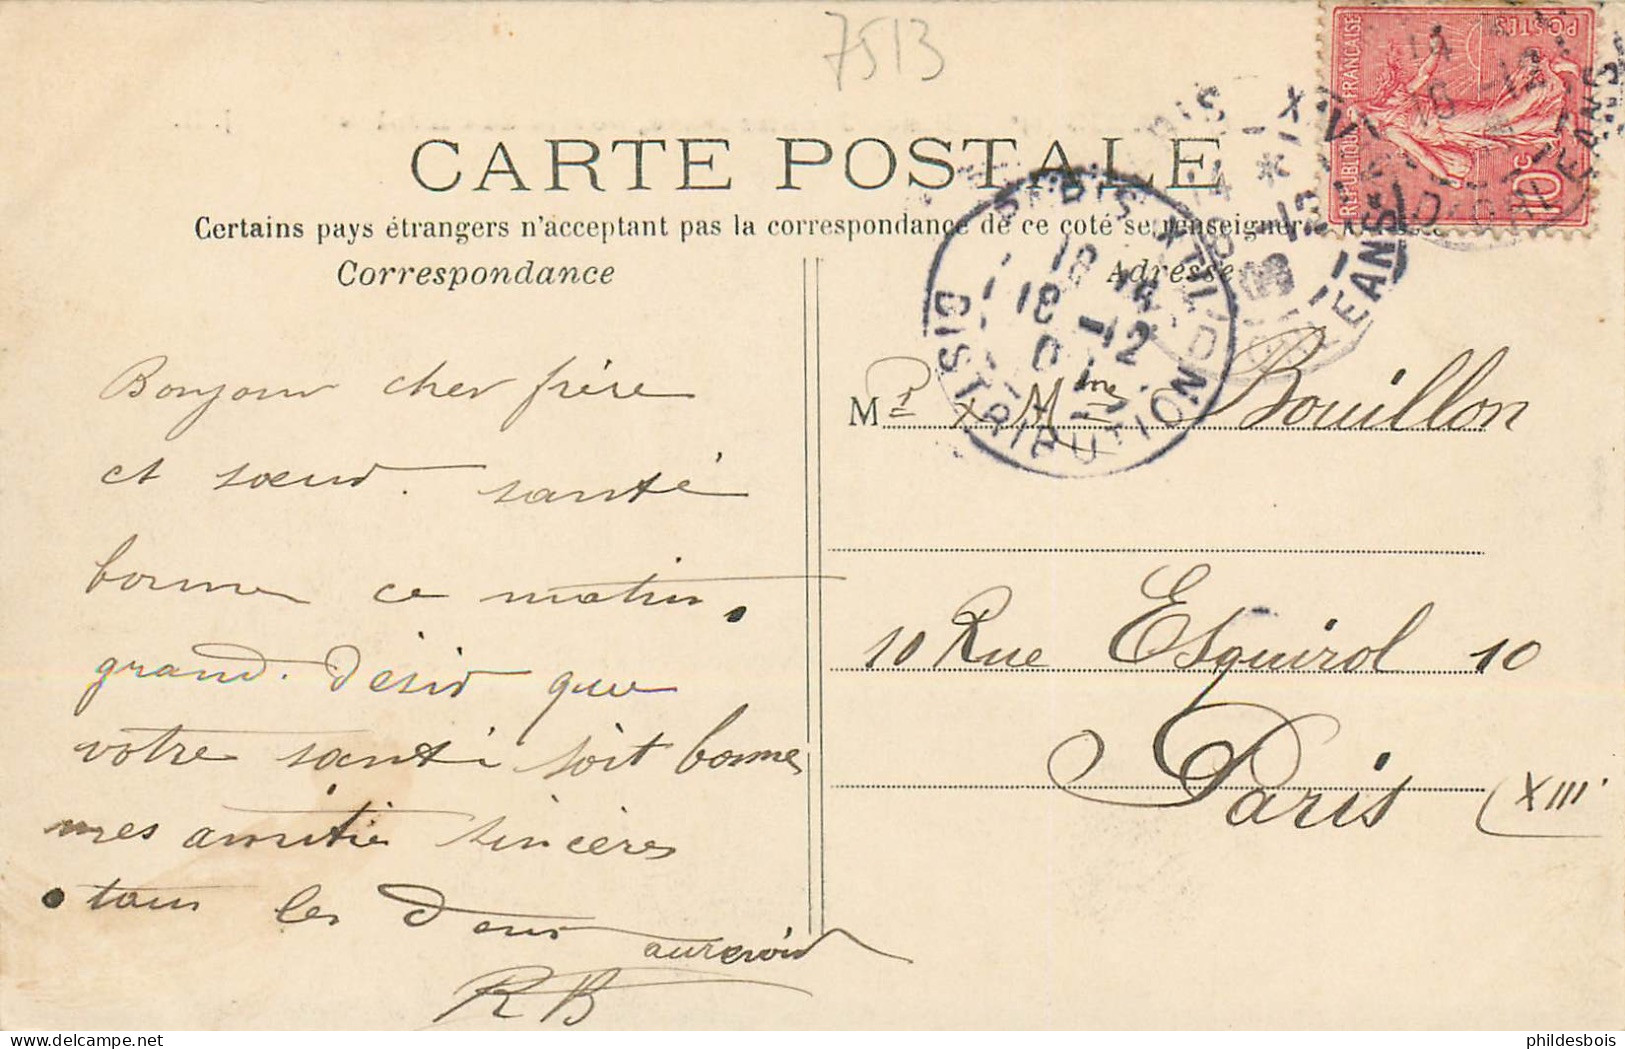 7513
CARTE POSTALE
Certains pays étrangers n'acceptant pas la correspondance de ce coté se renseigner
Correspondance
Adresse
RÉPUBLIQUE FRANÇAISE
POSTES
10c
PARIS XIII
18 14
18 -12
DISTRIBUTION
Bonjour cher frère
et sœur. santé
bonne ce matin.
grand. Désir que
votre santé soit bonne
mes amitié sincères
tous les Deux
aurevoir
RB
Mr x Mme Bouillon
10 Rue Esquirol 10
Paris (XIII
phildesbois